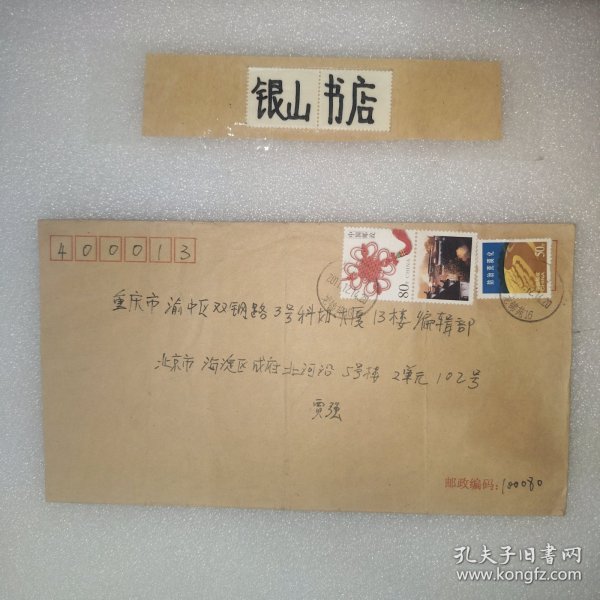 银山书店
400013
中国邮政
80分
CHINA
50分
重庆市渝中区双钢路3号科协大厦13楼编辑部
北京市海淀区成府北河沿5号楼2单元102号
贾强
邮政编码：100080
孔夫子旧书网
www.kongfz.com